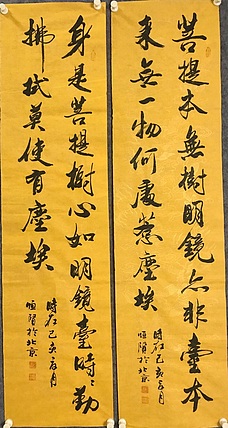 菩提本無樹明鏡亦非臺本
来無一物何處惹塵埃
時在己亥月
於北京
身是菩提樹心如明鏡臺時〻勤
拂拭莫使有塵埃
時在己亥月
於北京